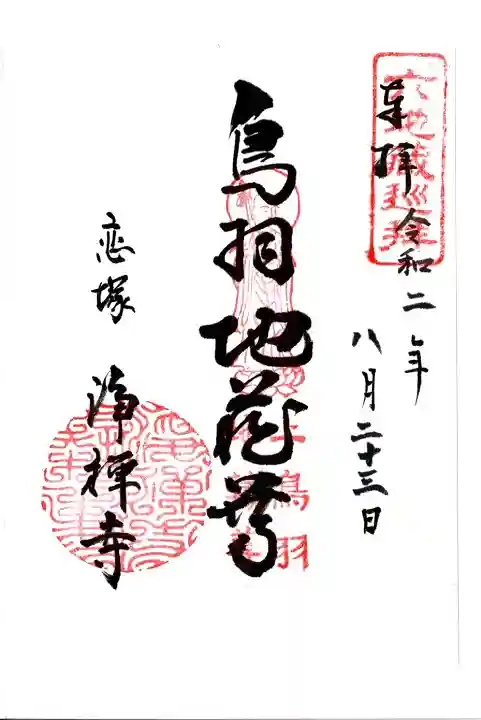 六地蔵巡拝
奉拝 令和二年
八月二十三日
鳥羽地蔵尊
上鳥羽
恋塚
浄禅寺